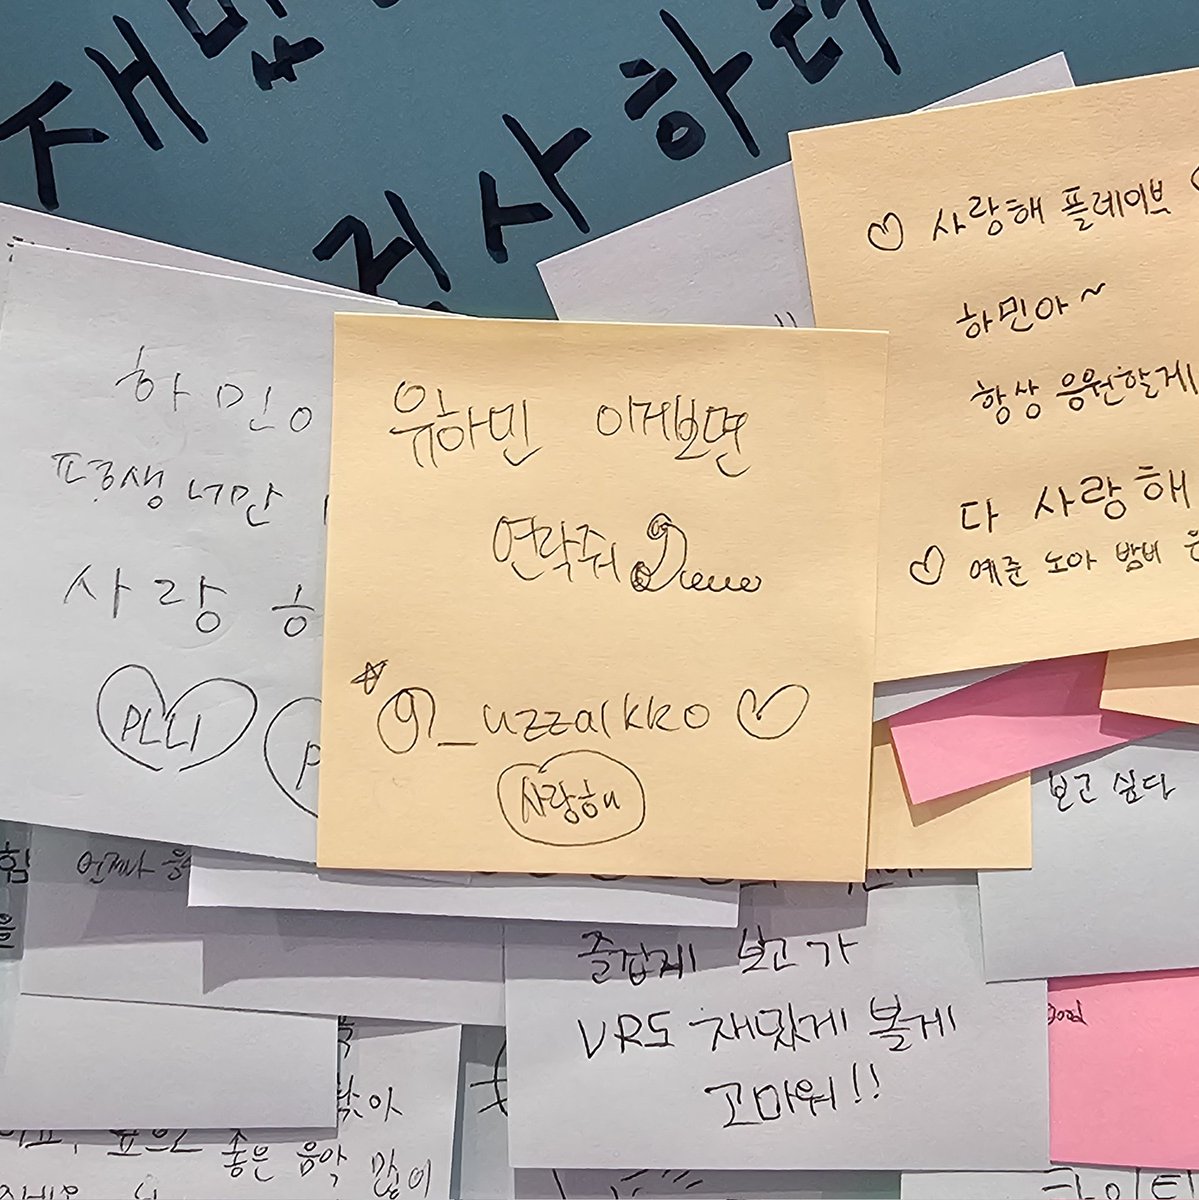 재밌
사하려
하민아
평생 너만
사랑 해
PLLI
유하민 이거보면
연락줘
91_uzzalkko
사랑해
사랑해 플레이브
하민아~
항상 응원할게
다 사랑해
예준 노아 밤비 은
보고 싶다
언제나
힘
을
즐겁게 보고 가
VR도 재밌게 볼게
고마워!!
좋은 음악 많이